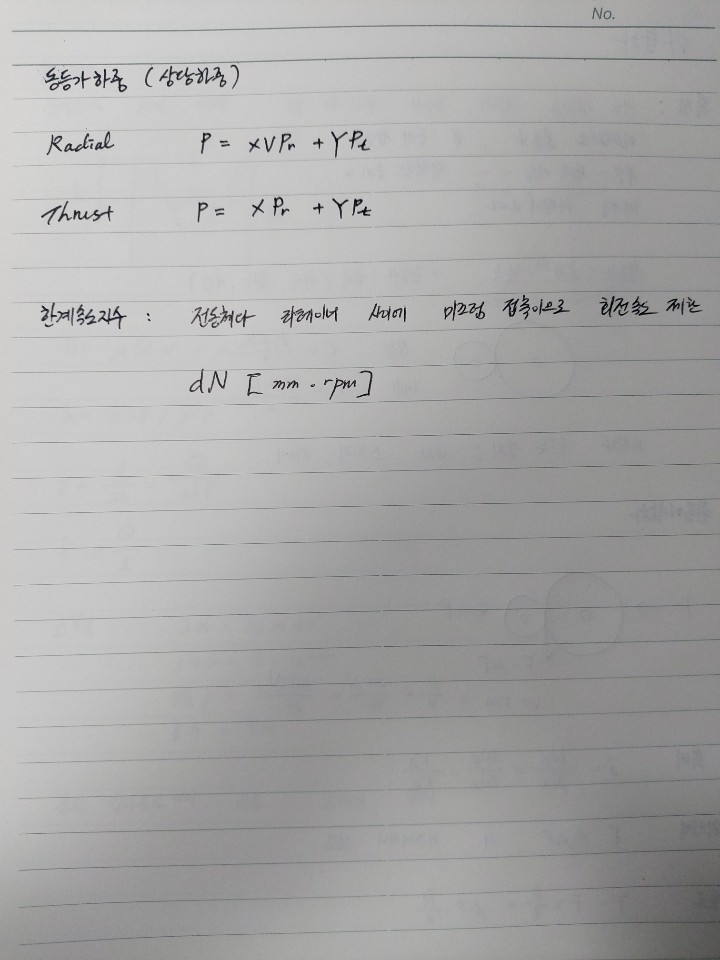 No.
동등가하중 (상당하중)
Radial P = XVPr + YPt
Thrust P = XPr + YPt
한계속도지수 : 전동체와 리테이너 사이에 미끄럼 접촉이므로 회전속도 제한
dN [mm · rpm]